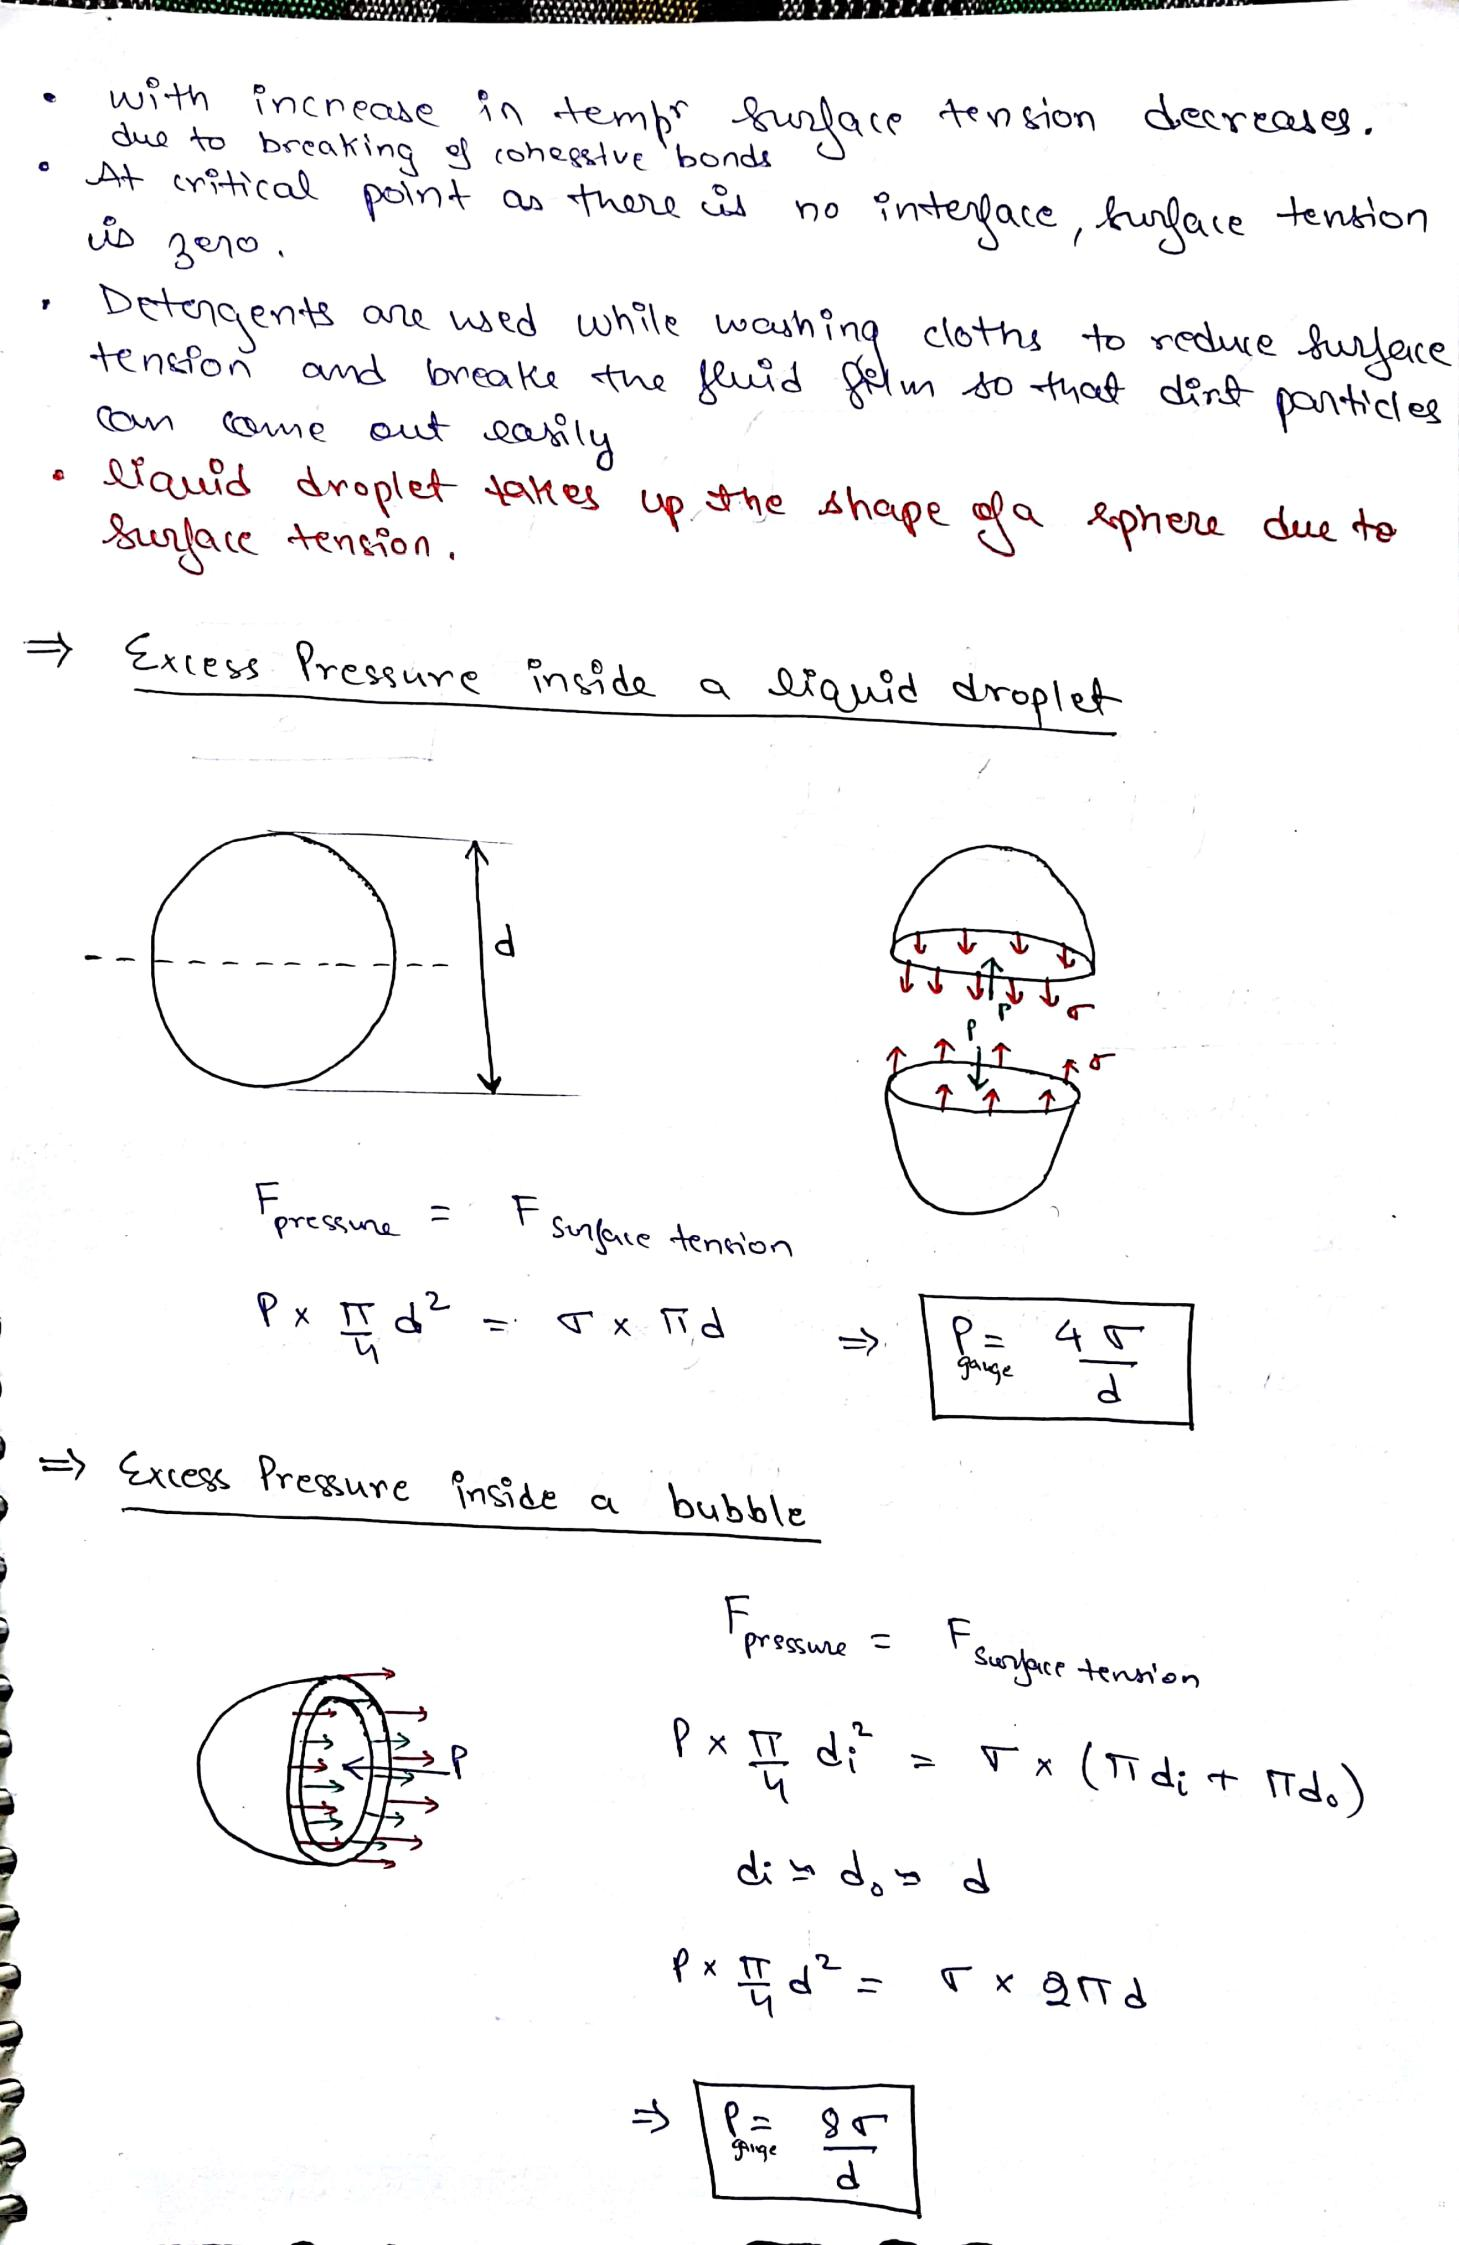 • with increase in tempr surface tension decreases.
due to breaking of cohesstve bonds
• At critical point as there is no interface, surface tension
is zero.
• Detergents are used while washing cloths to reduce surface
tension and breake the fluid film so that dirt particles
can come out easily
• liquid droplet takes up the shape of a sphere due to
surface tension.
⇒ Excess Pressure inside a liquid droplet
d
P σ
P σ
F pressure = F surface tension
P × π/4 d² = σ × πd ⇒ P gauge = 4σ/d
⇒ Excess Pressure inside a bubble
F pressure = F surface tension
P
P × π/4 di² = σ × (πdi + πdo)
di ≃ do ≃ d
P × π/4 d² = σ × 2πd
⇒ P gauge = 8σ/d